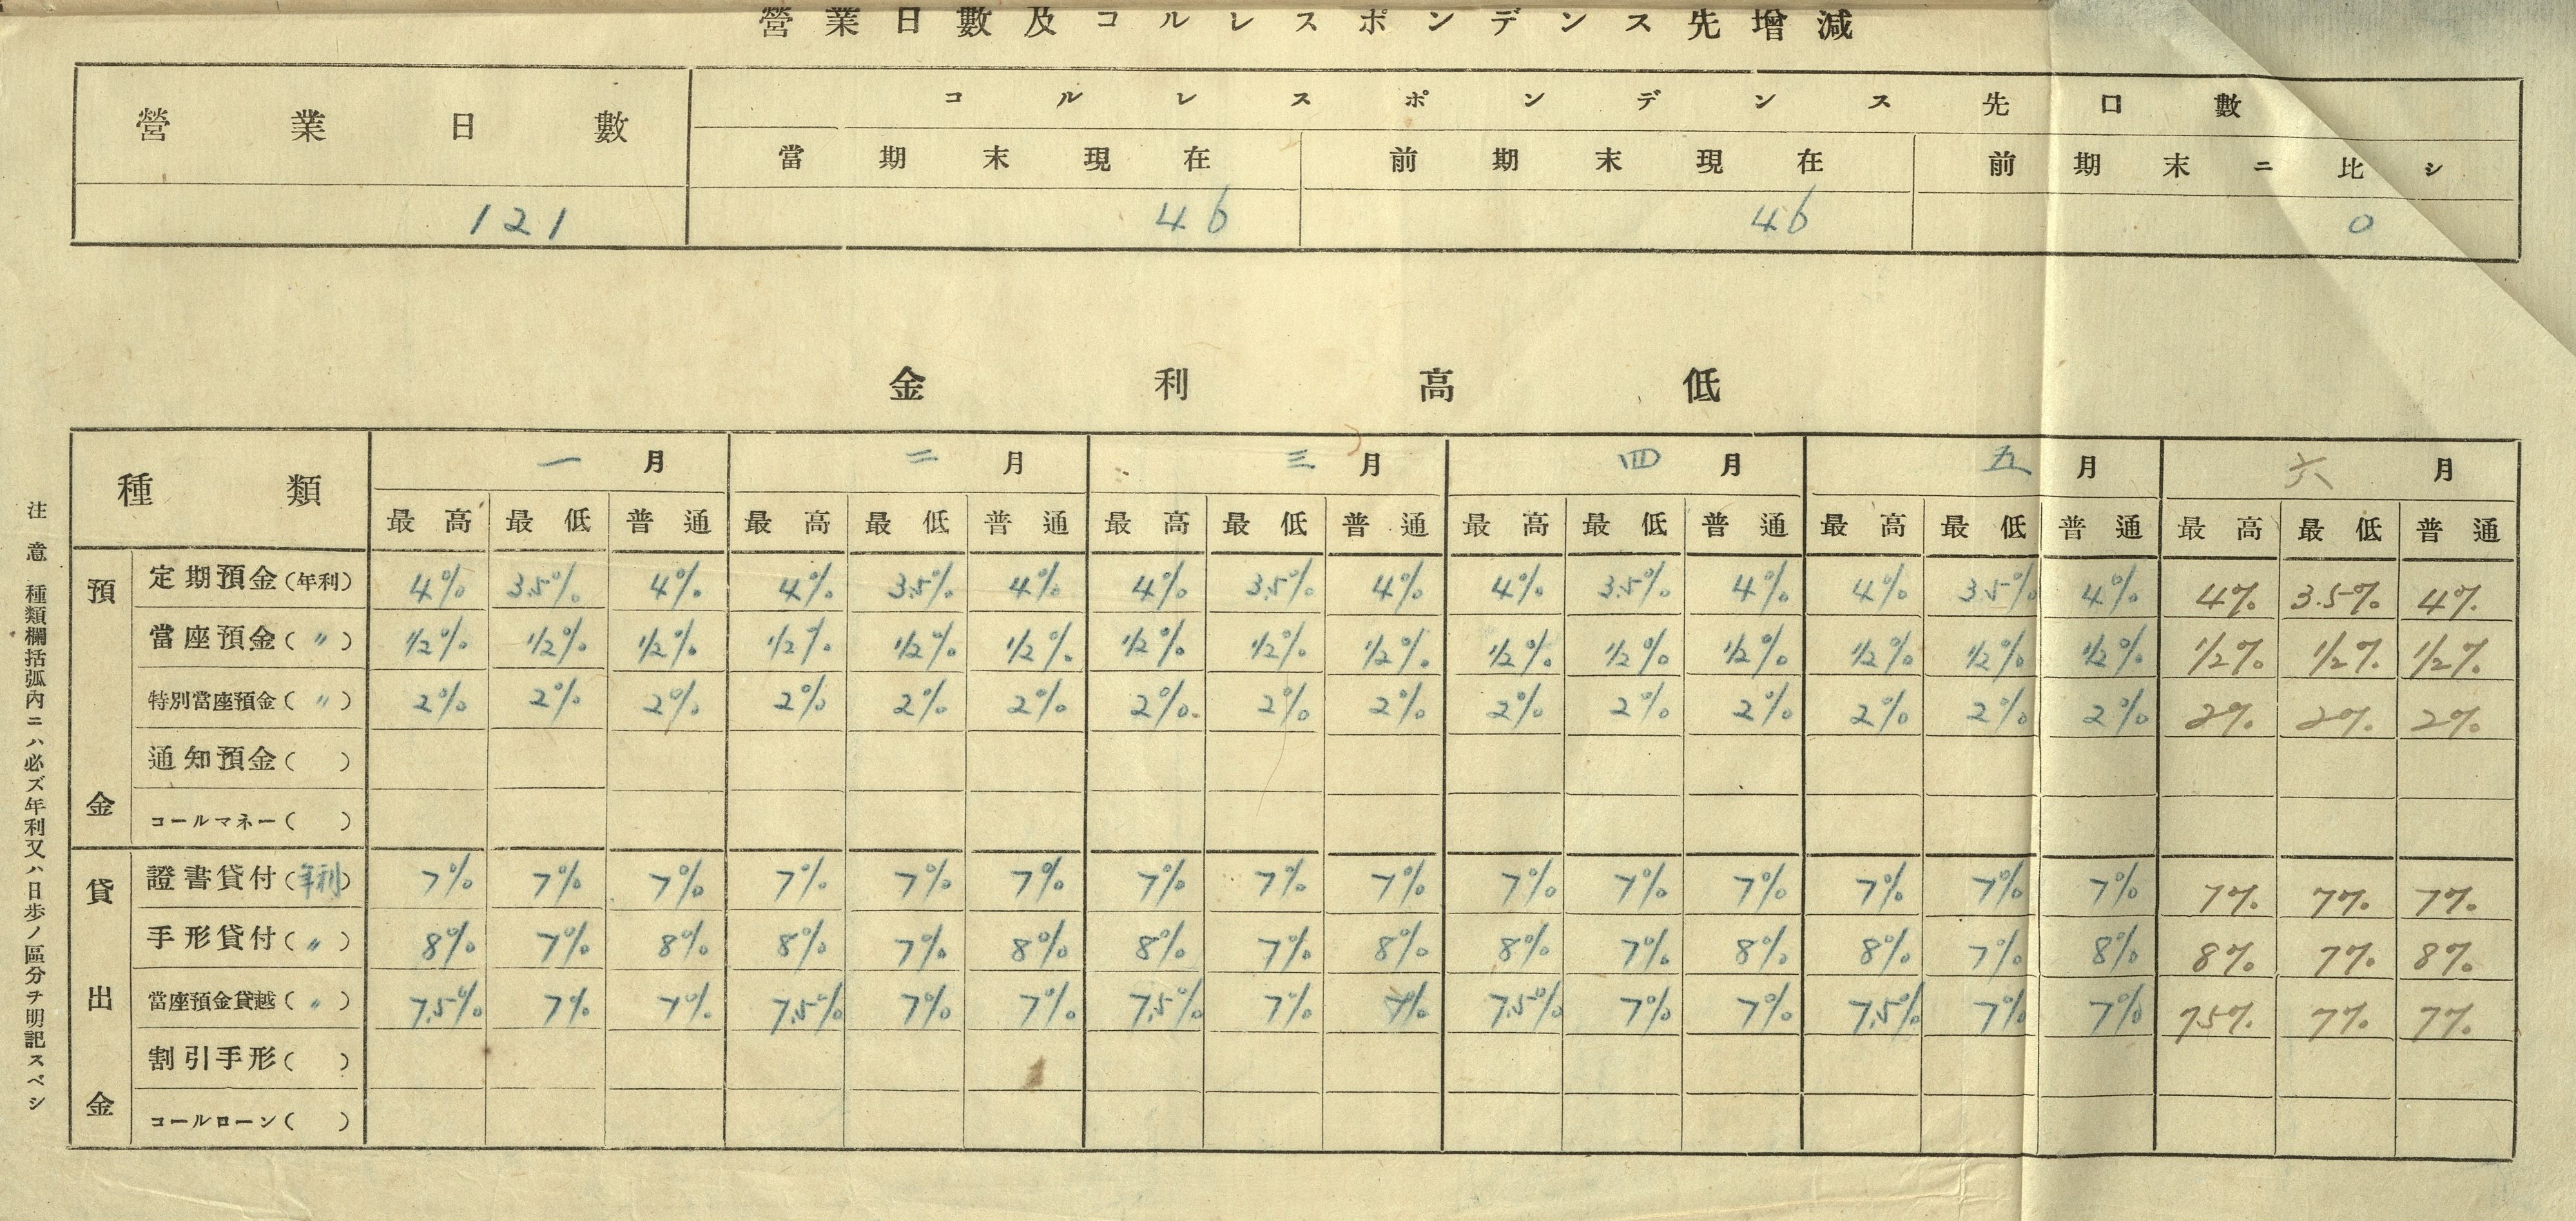 營業日數及コルレスポンデンス先增減
營業日數 コルレスポンデンス先口數
當期末現在 前期末現在 前期末ニ比シ
121 46 46 0
金利高低
種類 一月 二月 三月 四月 五月 六月
最高 最低 普通 最高 最低 普通 最高 最低 普通 最高 最低 普通 最高 最低 普通 最高 最低 普通
預金
定期預金(年利) 4% 3.5% 4% 4% 3.5% 4% 4% 3.5% 4% 4% 3.5% 4% 4% 3.5% 4% 4% 3.5% 4%
當座預金(〃) 1/2% 1/2% 1/2% 1/2% 1/2% 1/2% 1/2% 1/2% 1/2% 1/2% 1/2% 1/2% 1/2% 1/2% 1/2% 1/2% 1/2% 1/2%
特別當座預金(〃) 2% 2% 2% 2% 2% 2% 2% 2% 2% 2% 2% 2% 2% 2% 2% 2% 2% 2%
通知預金( )
コールマネー( )
貸出金
證書貸付(年利) 7% 7% 7% 7% 7% 7% 7% 7% 7% 7% 7% 7% 7% 7% 7% 7% 7% 7%
手形貸付(〃) 8% 7% 8% 8% 7% 8% 8% 7% 8% 8% 7% 8% 8% 7% 8% 8% 7% 8%
當座預金貸越(〃) 7.5% 7% 7% 7.5% 7% 7% 7.5% 7% 7% 7.5% 7% 7% 7.5% 7% 7% 75% 7% 7%
割引手形( )
コールローン( )
注意 種類欄括弧內ニハ必ズ年利又ハ日步ノ區分ヲ明記スベシ